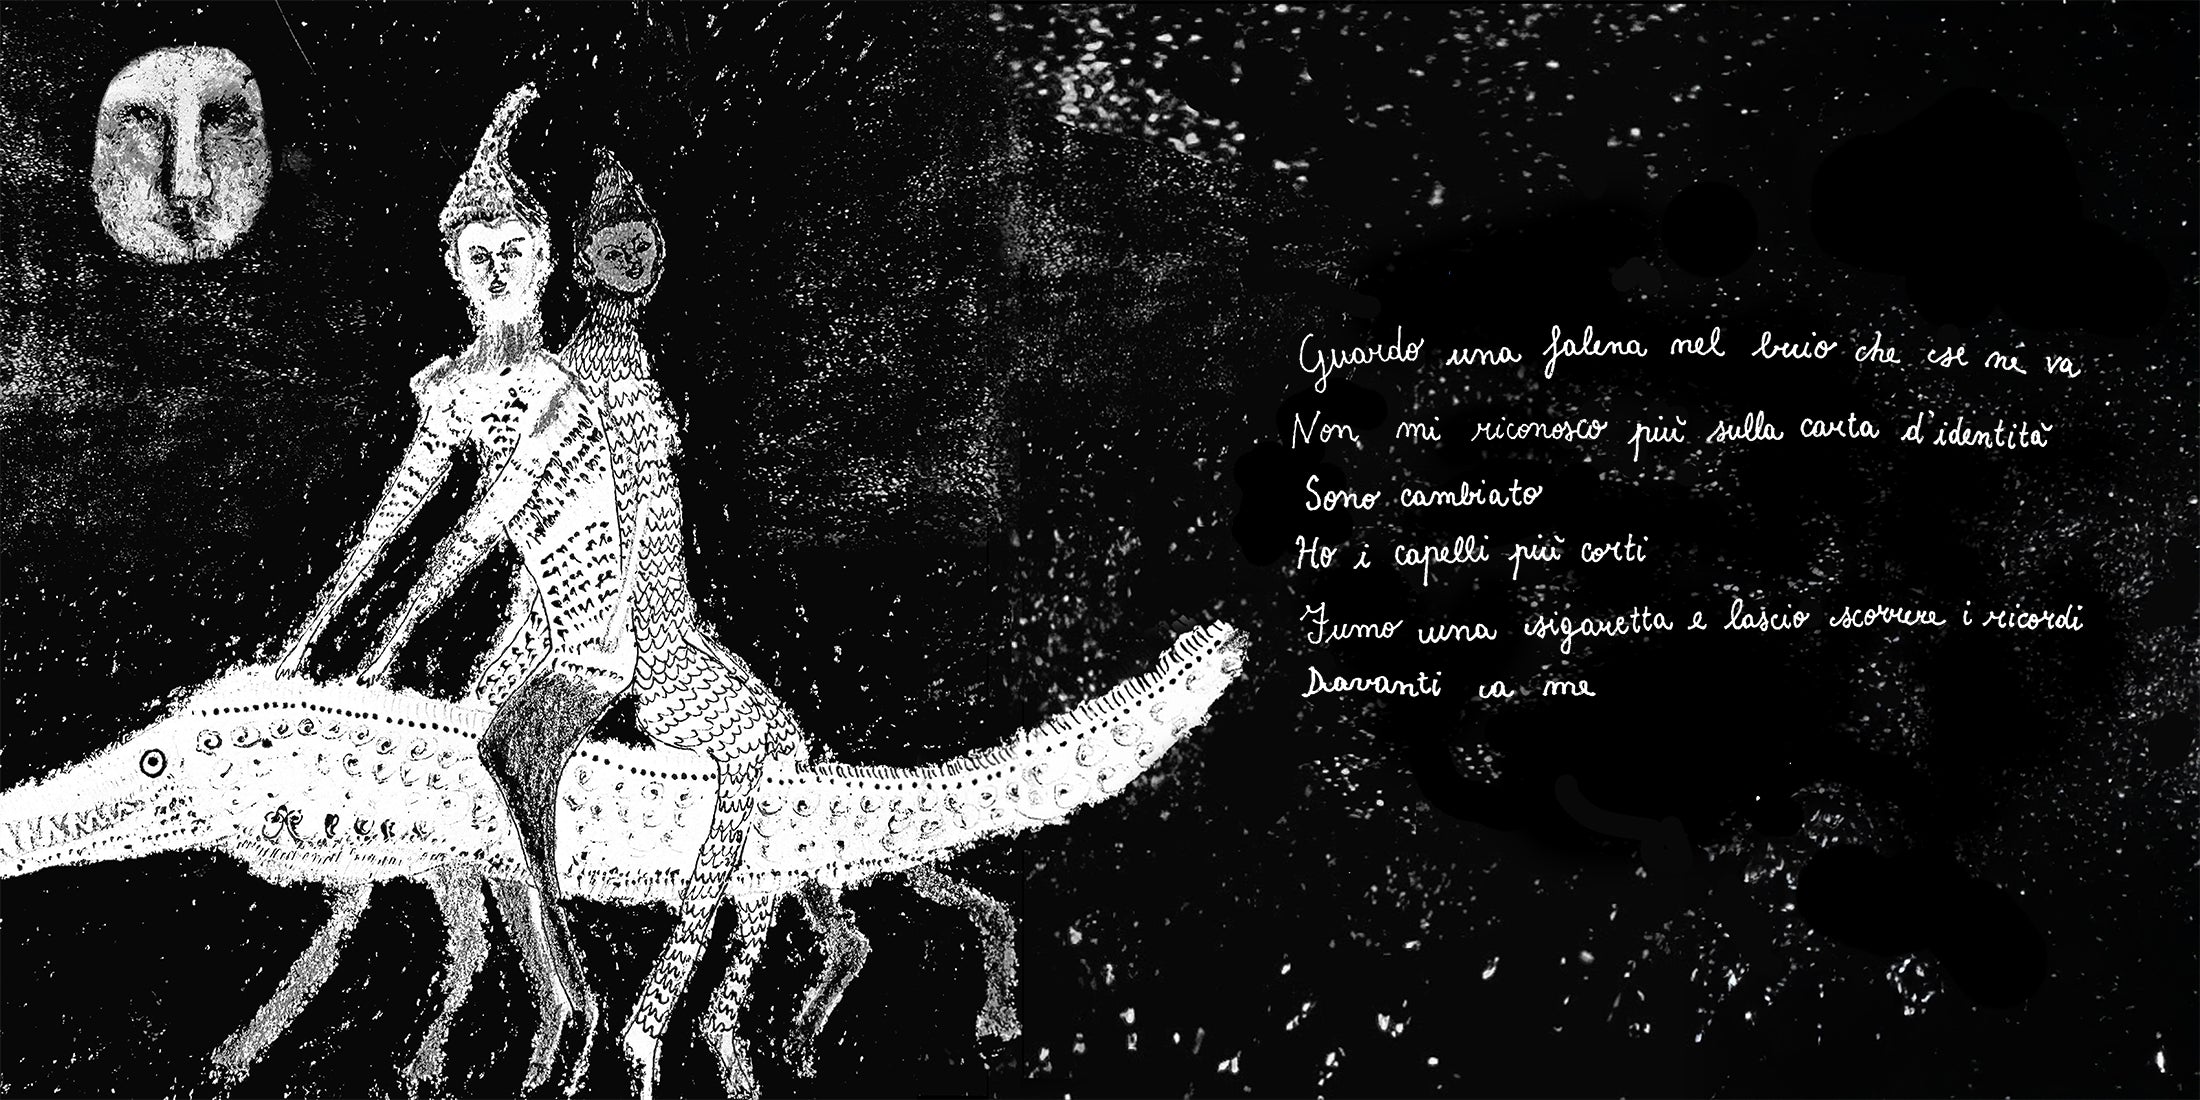 Guardo una falena nel buio che se ne va
Non mi riconosco più sulla carta d'identità
Sono cambiato
Ho i capelli più corti
Fumo una sigaretta e lascio scorrere i ricordi
Davanti a me